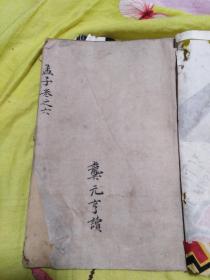 孟子卷之六
龔元亨讀